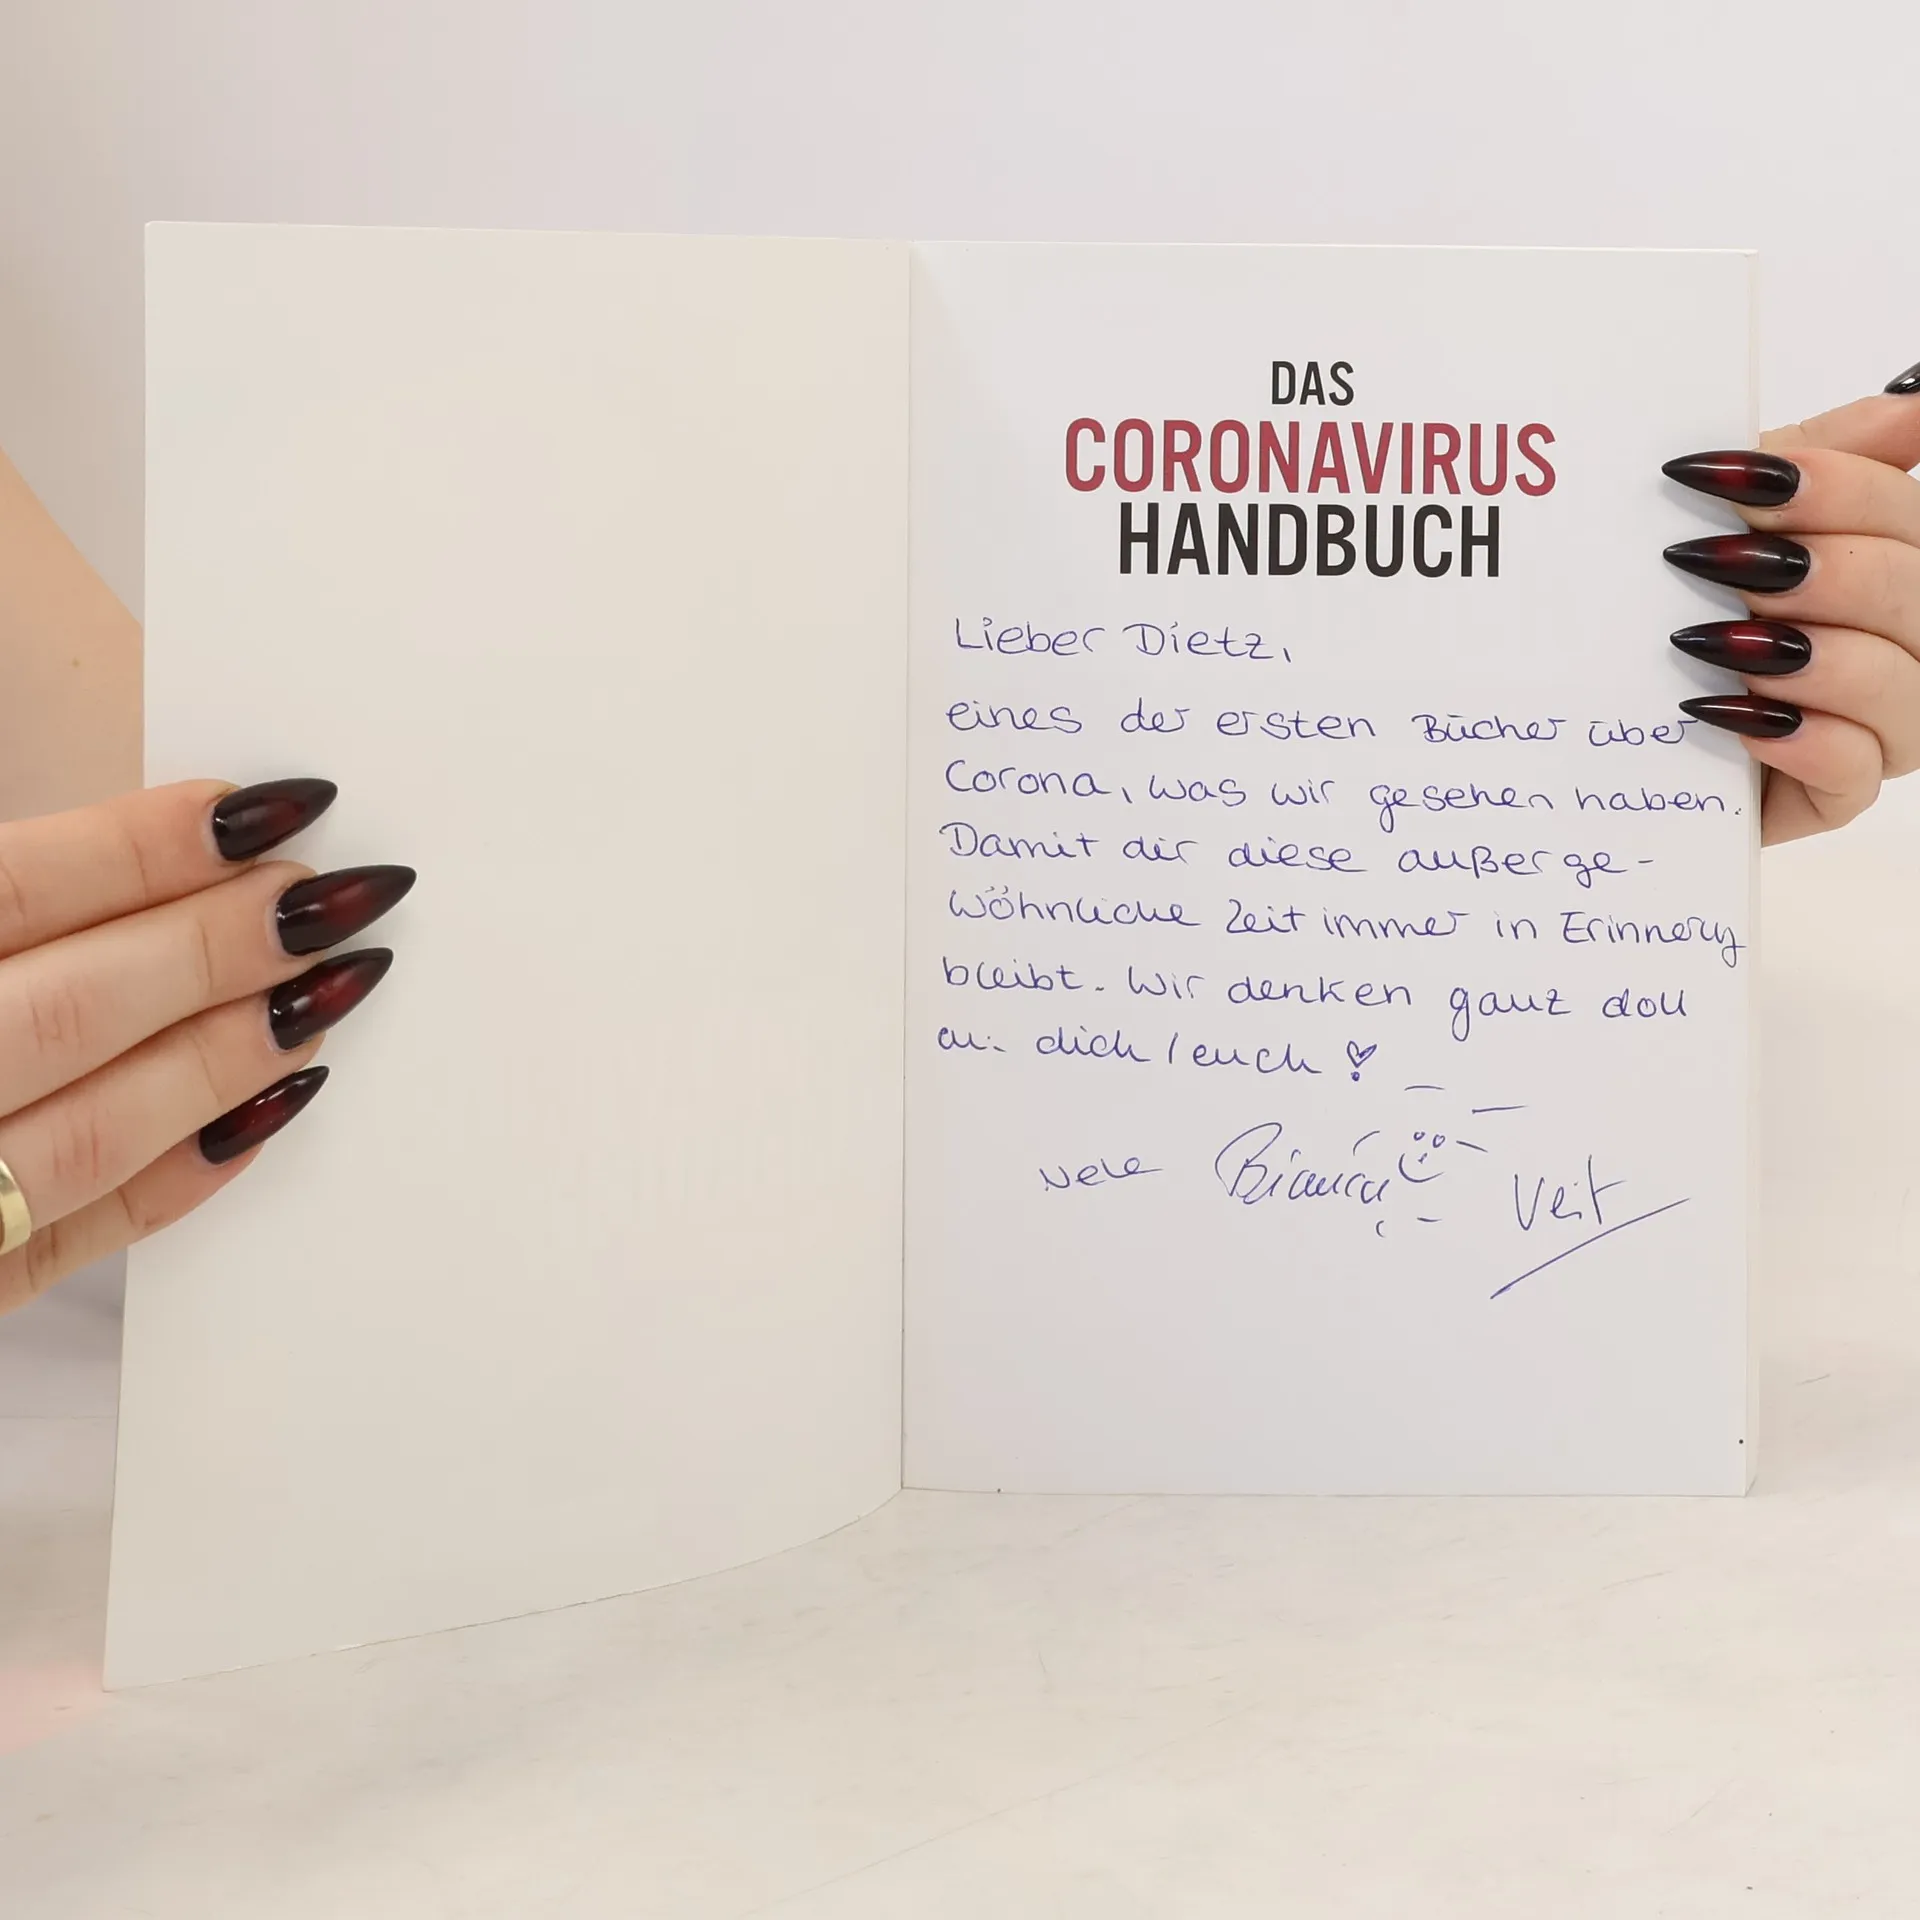 DAS
CORONAVIRUS
HANDBUCH
Lieber Dietz,
eines der ersten Bücher über
Corona, was wir gesehen haben.
Damit dir diese außerge-
wöhnliche Zeit immer in Erinnerung
bleibt. Wir denken ganz doll
an dich / euch
Nele Bianca Veit